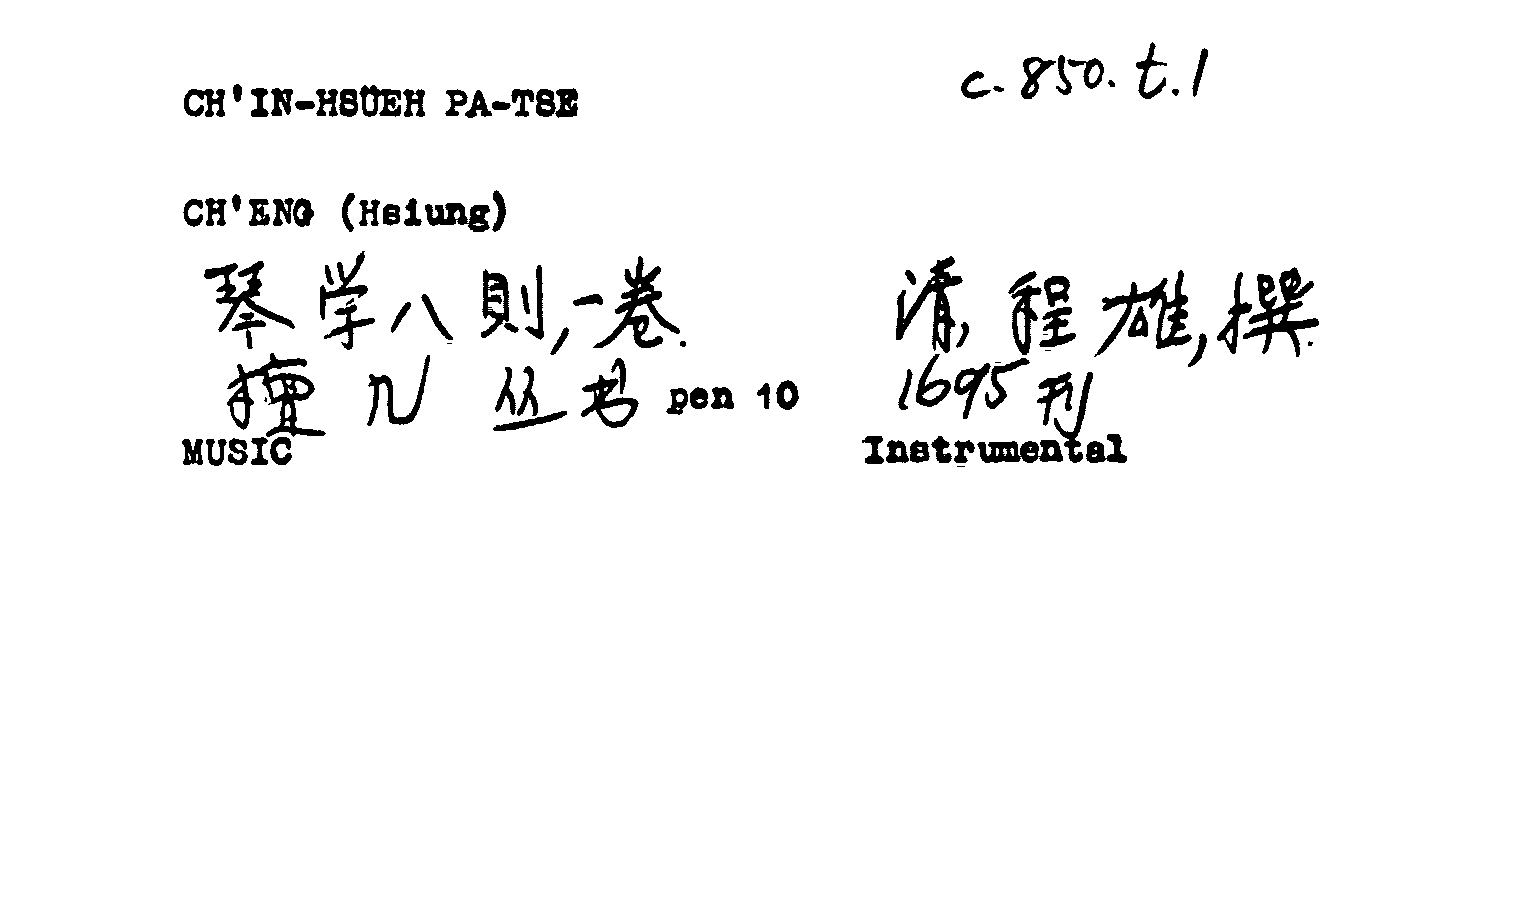 c.850.t.1
CH'IN-HSÜEH PA-TSE
CH'ENG (Hsiung)
琴学八則,一卷. 清,程雄,撰.
檀几丛书 pen 10 1695刊
MUSIC Instrumental